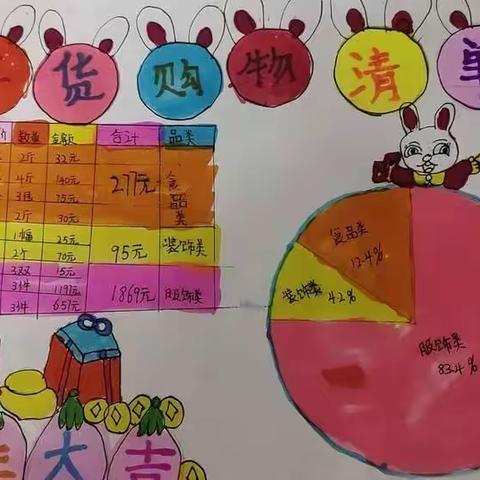 货购物清单
价 数量 金额 合计 品类
2斤 32元
4斤 140元 277元 食品类
3箱 75元
2斤 30元
1幅 25元 95元 装饰类
2个 70元
3双 15元
3件 1197元 1869元 服饰类
3件 657元
食品类
12.4%
装饰类 4.2%
服饰类
83.4%
年大吉